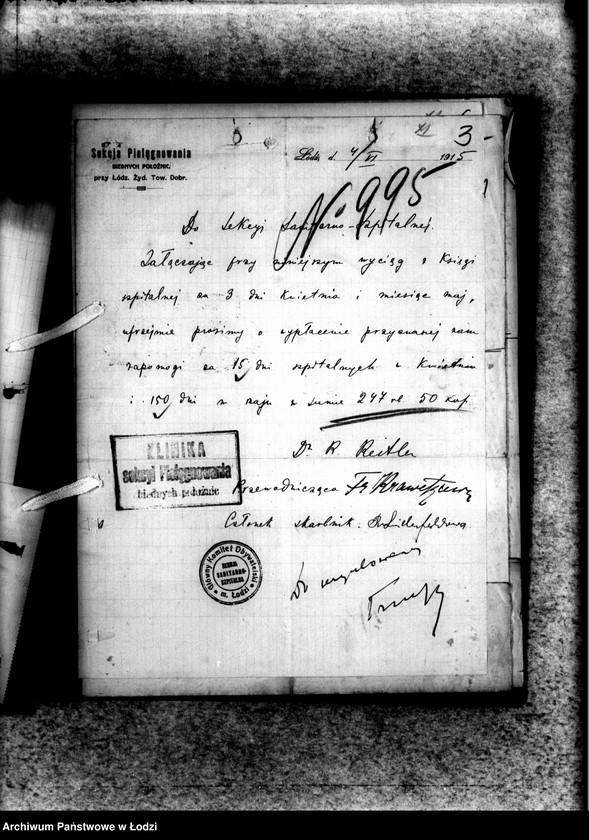 3-
Sekcja Pielęgnowania
BIEDNYCH POŁOŻNIC.
przy Łódz. Żyd. Tow. Dobr.
Łódź d. 4/VI 1915
№ 995
Do Sekcyi Sanitarno-Szpitalnej.
Załączając przy niniejszym wyciąg z Księgi
szpitalnej za 3 dni kwietnia i miesiąc maj,
uprzejmie prosimy o wypłacenie przyznanej nam
zapomogi za 15 dni szpitalnych w kwietniu
i 150 dni w maju w sumie 247 rl. 50 kop.
Dr R. Reitler
KLINIKA
sekcyi Pielęgnowania
biednych położnic
Przewodnicząca
Członek skarbnik
Główny Komitet Obywatelski
m. Łodzi
SEKCJA
SANITARNO-
SZPITALNA
Do
Archiwum Państwowe w Łodzi